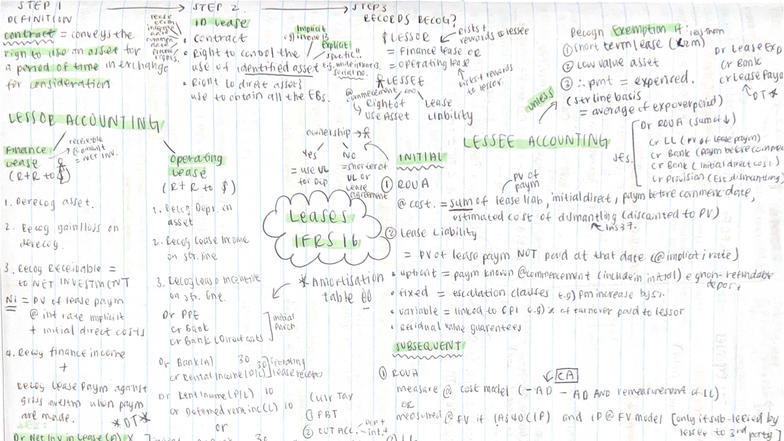 STEP 1
DEFINITION
contract = conveys the
right to use an asset for
a period of time in exchange
for consideration
STEP 2
ID Lease
• Contract
• Right to control the
use of identified asset
• Right to direct asset
use to obtain all the EBs.
Implicit
Explicit
specific..
serial no.
STEP 3
RECORDS RECOG?
$ LESSOR
= Finance lease OR
= operating lease
Risks +
rewards to lessee
risks + rewards
to lessor
LESSEE
@ commencement
Right of
use Asset
Lease
Liability
ownership →
Yes
= use UL
for Dep
No
= shorter of
UL or
Lease
agreement
Recogn Exemption if:
① Short term lease
② Low value asset
③ ∴ pmt = expensed.
(Str line basis
= average of exp over period)
unless
Dr Lease Exp
Cr Bank
or Lease Paya
*DT*
LESSOR ACCOUNTING
Finance
Lease
(R+R to
receivable
@ amount
= NET INV.
1. Derecog asset.
2. Recog gain/loss on
derecog.
3. Recog Receivable =
to NET INVESTMENT
Ni = PV of lease paym
@ int rate implicit
+ initial direct costs
4. Recog finance income
+
Recog Lease Paym against
gross investm when paym
are made.
*DT*
Dr Net Inv in Lease (A)
Operating
Lease
(R+R to $)
1. Recog Depr. on
asset
2. Recog Lease Income
on str. line
3. Recog Lease Incentive
on str. line
Dr PPE
cr Bank
cr Bank (Direct costs)
initial
Purch
Dr Bank (A) 30
cr Rental Income (P/L) 30
lease receipts
Dr Rent Income (P/L) 10
cr Deferred rent inc (L) 10
or
Leases
IFRS 16
*Amortisation
table
Curr Tax
① PBT
②
LESSEE ACCOUNTING
Dr ROUA (sum of ↓)
cr LL (PV of lease paym)
cr Bank (Paym before commence
cr Bank (Initial direct cost)
cr Provision (Est dismantling)
INITIAL
① ROUA
PV of
paym
@ cost. = sum of lease liab, initial direct, paym before commenc date,
estimated cost of dismantling (discounted to PV)
② Lease Liability
= PV of lease paym NOT paid at that date (@ implicit i rate)
• upfront = paym known @ commencement (include in initial) eg non-refundable
• fixed = escalation clauses e.g) Pm increase by 5%
• variable = linked to CPI e.g) % of turnover paid to lessor
• residual value guarantees
SUBSEQUENT
① ROUA
CA
measure @ cost model (- AD - AD and remeasurement of LL)
OR
measured @ FV if IAS 40 (IP) and IP @ FV model [only if sub-leased by
lessee to 3rd party]